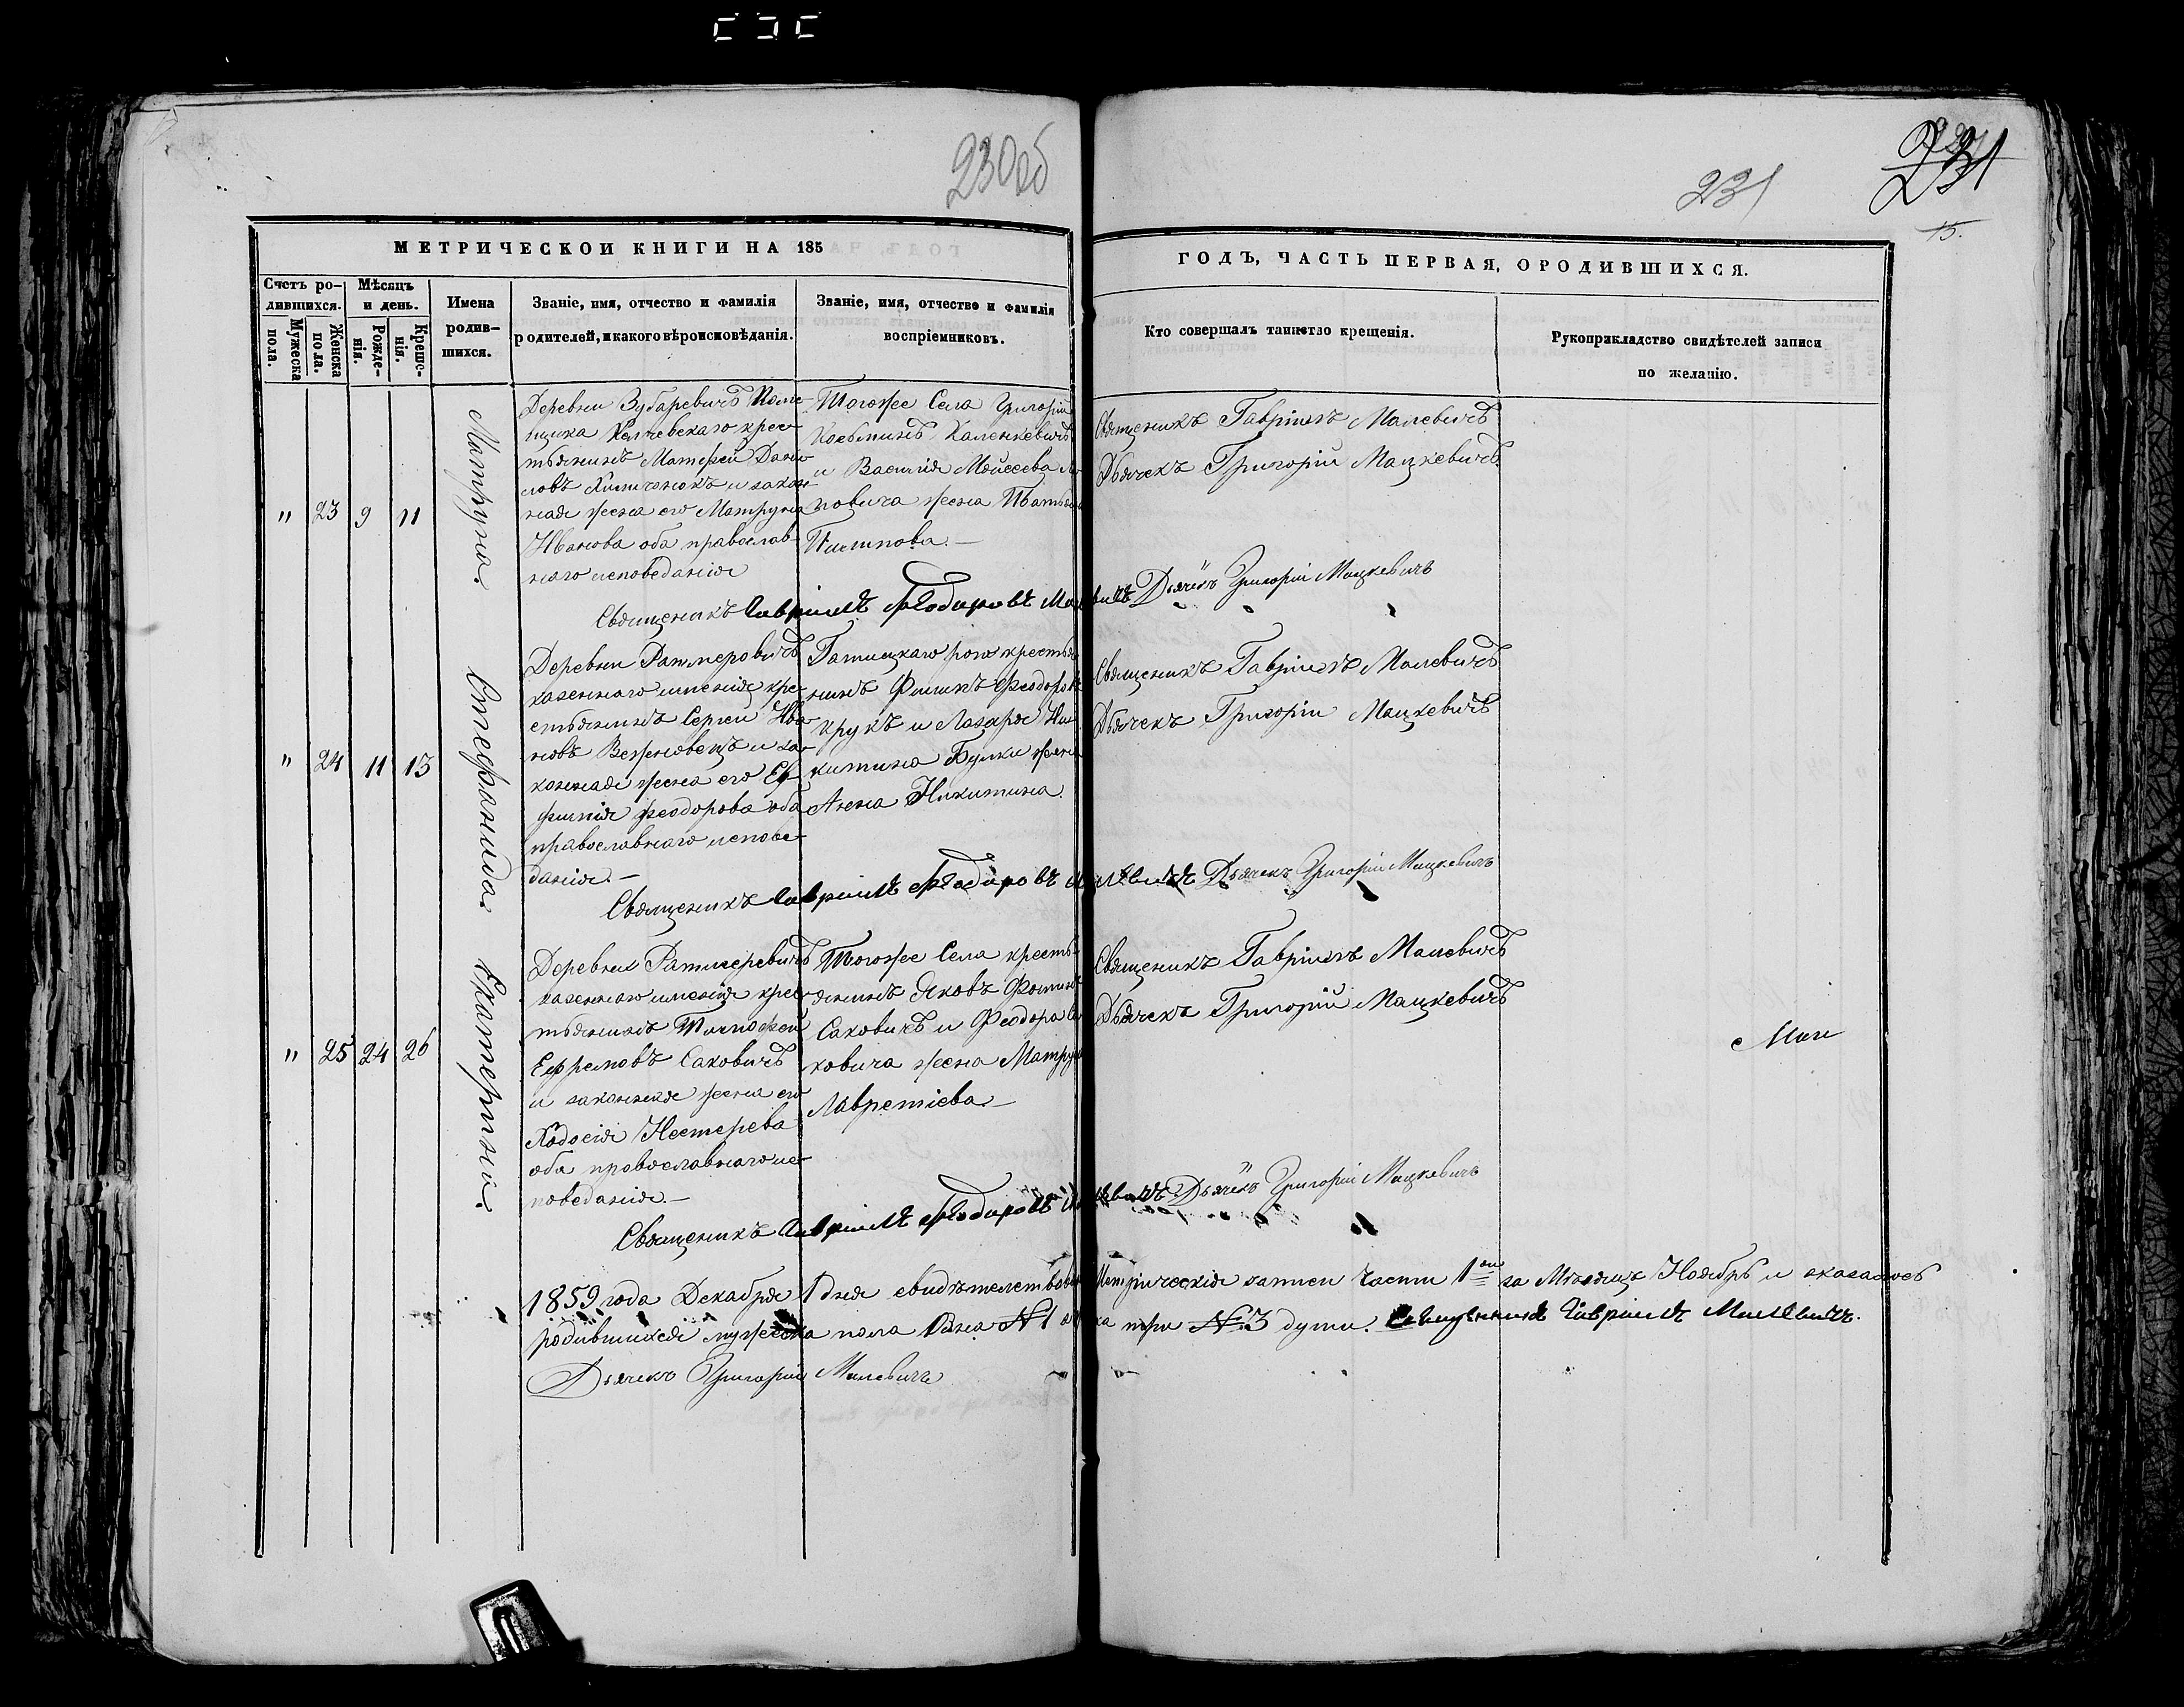 230 об
231
231
15.
МЕТРИЧЕСКОИ КНИГИ НА 185
ГОДЪ, ЧАСТЬ ПЕРВАЯ, ОРОДИВШИХСЯ.
Счетъ ро-
дившихся.
Мужеска
пола.
Женска
пола.
Мѣсяцъ
и день.
Рожде-
нія.
Креще-
нія.
Имена
родив-
шихся.
Званіе, имя, отчество и фамилія
родителей, и какого вѣроисповѣданія.
Званіе, имя, отчество и фамилія
воспріемниковъ.
Кто совершалъ таинство крещенія.
Рукоприкладство свидѣтелей записи
по желанію.
" 23 9 11
Матруна.
Деревни Зубаревичъ Поме-
щика крес-
тьянинъ Матфей Дани-
ловъ и закон-
ная жена его Матруна
Иванова оба православ-
наго исповеданія
Тогожже Села Григорій
Косьминъ Каленкевичъ
и Василія Мойсеева
жена Татьяна
Священикъ Гавріилъ Малевичъ
Дьячекъ Григорій Мацкевичъ
Священикъ Гавріилъ Феодоровъ Малевичъ Дьячекъ Григорій Мацкевичъ
" 24 11 13
Стефанида
Деревни Ратмеровичъ
казеннаго именія кре-
стьянинъ Сергей Ива-
новъ Вежновецъ и за-
конная жена его Еф-
фимія Феодорова оба
православнаго испове-
данія.—
крестья-
нинъ Феодоровъ
Крукъ и Лазаря Ни-
китина Булки жена
Анна Никитина.
Священикъ Гавріилъ Малевичъ
Дьячекъ Григорій Мацкевичъ
Священикъ Гавріилъ Феодоровъ Малевичъ Дьячекъ Григорій Мацкевичъ
" 25 24 26
Екатерина.
Деревни Ратмеревичъ
казеннаго именія крес-
тьянинъ Тимофей
Ефремовъ Саковичъ
и законная жена его
Ходосія Нестерева
оба православнаго ис-
поведанія.—
Тогожже Села кресть-
янинъ Яковъ Фоминъ
Саковичъ и Феодора Са-
ковича жена Матруна
Лавретіева.—
Священикъ Гавріилъ Малевичъ
Дьячекъ Григорій Мацкевичъ
Священикъ Гавріилъ Феодоровъ Малевичъ Дьячекъ Григорій Мацкевичъ
1859 года Декабря 1 дня свидѣтелствовалъ Метрическія записи части 1ой за Мѣсяцъ Ноябрь и оказалось
родившихся мужеска пола одна № 1 три № 3 души. Священникъ Гавріилъ Малевичъ.
Дьячекъ Григорій